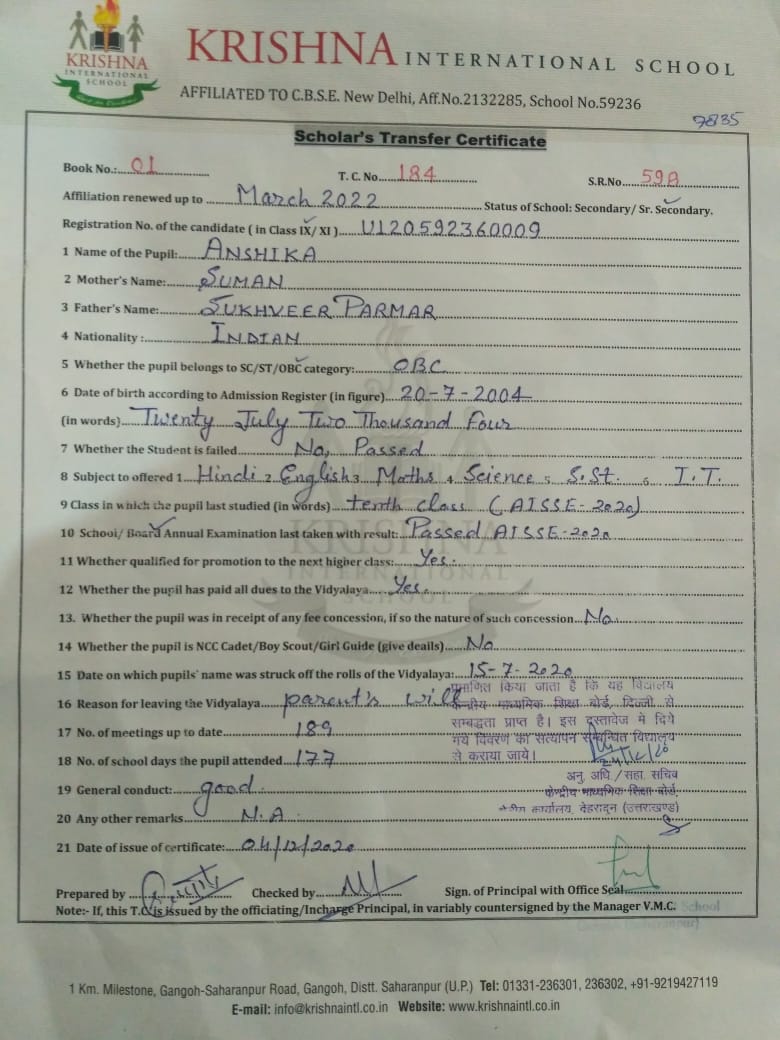 KRISHNA
INTERNATIONAL
SCHOOL
KRISHNA INTERNATIONAL SCHOOL
AFFILIATED TO C.B.S.E. New Delhi, Aff.No.2132285, School No.59236
7835
Scholar's Transfer Certificate
Book No.: 01 T. C. No. 184 S.R.No. 598
Affiliation renewed up to March 2022 Status of School: Secondary/ Sr. Secondary.
Registration No. of the candidate ( in Class IX/ XI ) U120592360009
1 Name of the Pupil: ANSHIKA
2 Mother's Name: SUMAN
3 Father's Name: SUKHVEER PARMAR
4 Nationality : INDIAN
5 Whether the pupil belongs to SC/ST/OBC category: OBC
6 Date of birth according to Admission Register (in figure) 20-7-2004
(in words) Twenty July Two Thousand Four
7 Whether the Student is failed No, Passed
8 Subject to offered 1 Hindi 2 English 3 Maths 4 Science 5 S.St. 6 I.T.
9 Class in which the pupil last studied (in words) tenth class (AISSE-2020)
10 School/ Board Annual Examination last taken with result: Passed AISSE-2020
11 Whether qualified for promotion to the next higher class: Yes.
12 Whether the pupil has paid all dues to the Vidyalaya Yes.
13. Whether the pupil was in receipt of any fee concession, if so the nature of such concession No.
14 Whether the pupil is NCC Cadet/Boy Scout/Girl Guide (give deails) No
15 Date on which pupils' name was struck off the rolls of the Vidyalaya: 15-7-2020
प्रमाणित किया जाता है कि यह विद्यालय
16 Reason for leaving the Vidyalaya parent's will
केन्द्रीय माध्यमिक शिक्षा बोर्ड, दिल्ली से
सम्बद्धता प्राप्त है। इस दस्तावेज में दिये
17 No. of meetings up to date 189
गये विवरण का सत्यापन सम्बन्धित विद्यालय
से कराया जाये।
18 No. of school days the pupil attended 177
अनु. अधि./सहा. सचिव
19 General conduct: good.
केन्द्रीय माध्यमिक शिक्षा बोर्ड,
क्षेत्रीय कार्यालय, देहरादून (उत्तराखण्ड)
20 Any other remarks N.A.
21 Date of issue of certificate: 04/12/2020
Prepared by Checked by Sign. of Principal with Office Seal
Note:- If, this T.C. is issued by the officiating/Incharge Principal, in variably countersigned by the Manager V.M.C.
1 Km. Milestone, Gangoh-Saharanpur Road, Gangoh, Distt. Saharanpur (U.P.) Tel: 01331-236301, 236302, +91-9219427119
E-mail: info@krishnaintl.co.in Website: www.krishnaintl.co.in